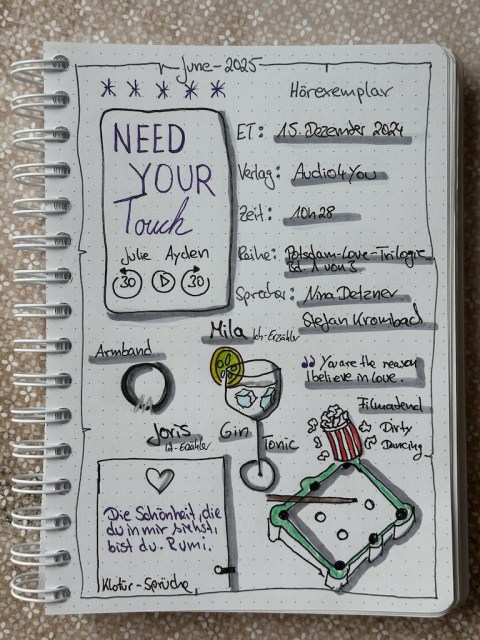 June-2025
Hörexemplar
NEED
YOUR
Touch
Julie Ayden
30 30
ET: 15. Dezember 2024
Verlag: Audio4You
Zeit: 10h28
Reihe: Potsdam-Love-Trilogie
Bd. 1 von 3
Sprecher: Nina Detzner
Stefan Krombach
Mila Ich-Erzähler
Armband
You are the reason
I believe in love.
Filmabend
Dirty
Dancing
Joris
Ich-Erzähler
Gin Tonic
Die Schönheit, die
du in mir siehst,
bist du. Rumi.
Klotür-Sprüche